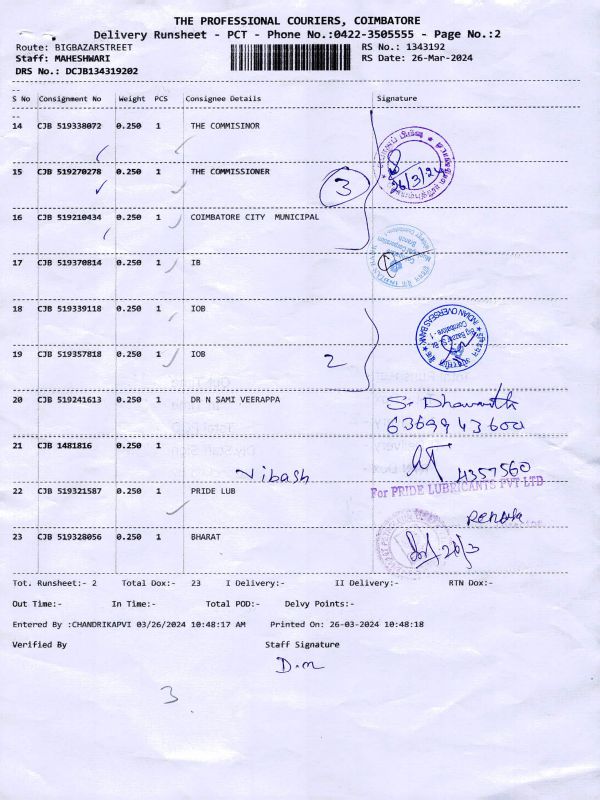 THE PROFESSIONAL COURIERS, COIMBATORE
Delivery Runsheet - PCT - Phone No.:0422-3505555 - Page No.:2
Route: BIGBAZARSTREET
RS No.: 1343192
Staff: MAHESHWARI
RS Date: 26-Mar-2024
DRS No.: DCJB134319202
S No Consignment No Weight PCS Consignee Details Signature
14 CJB 519338072 0.250 1 THE COMMISINOR
15 CJB 519270278 0.250 1 THE COMMISSIONER
3
26/3/24
16 CJB 519210434 0.250 1 COIMBATORE CITY MUNICIPAL
17 CJB 519370814 0.250 1 IB
18 CJB 519339118 0.250 1 IOB
INDIAN OVERSEAS BANK
19 CJB 519357818 0.250 1 IOB
2
20 CJB 519241613 0.250 1 DR N SAMI VEERAPPA
S. Dhavanth
6369943600
21 CJB 1481816 0.250 1
Vibash
4357560
22 CJB 519321587 0.250 1 PRIDE LUB
For PRIDE LUBRICANTS PVT LTD
23 CJB 519328056 0.250 1 BHARAT
26/3
Tot. Runsheet:- 2 Total Dox:- 23 I Delivery:- II Delivery:- RTN Dox:-
Out Time:- In Time:- Total POD:- Delvy Points:-
Entered By :CHANDRIKAPVI 03/26/2024 10:48:17 AM Printed On: 26-03-2024 10:48:18
Verified By Staff Signature
D.m
3